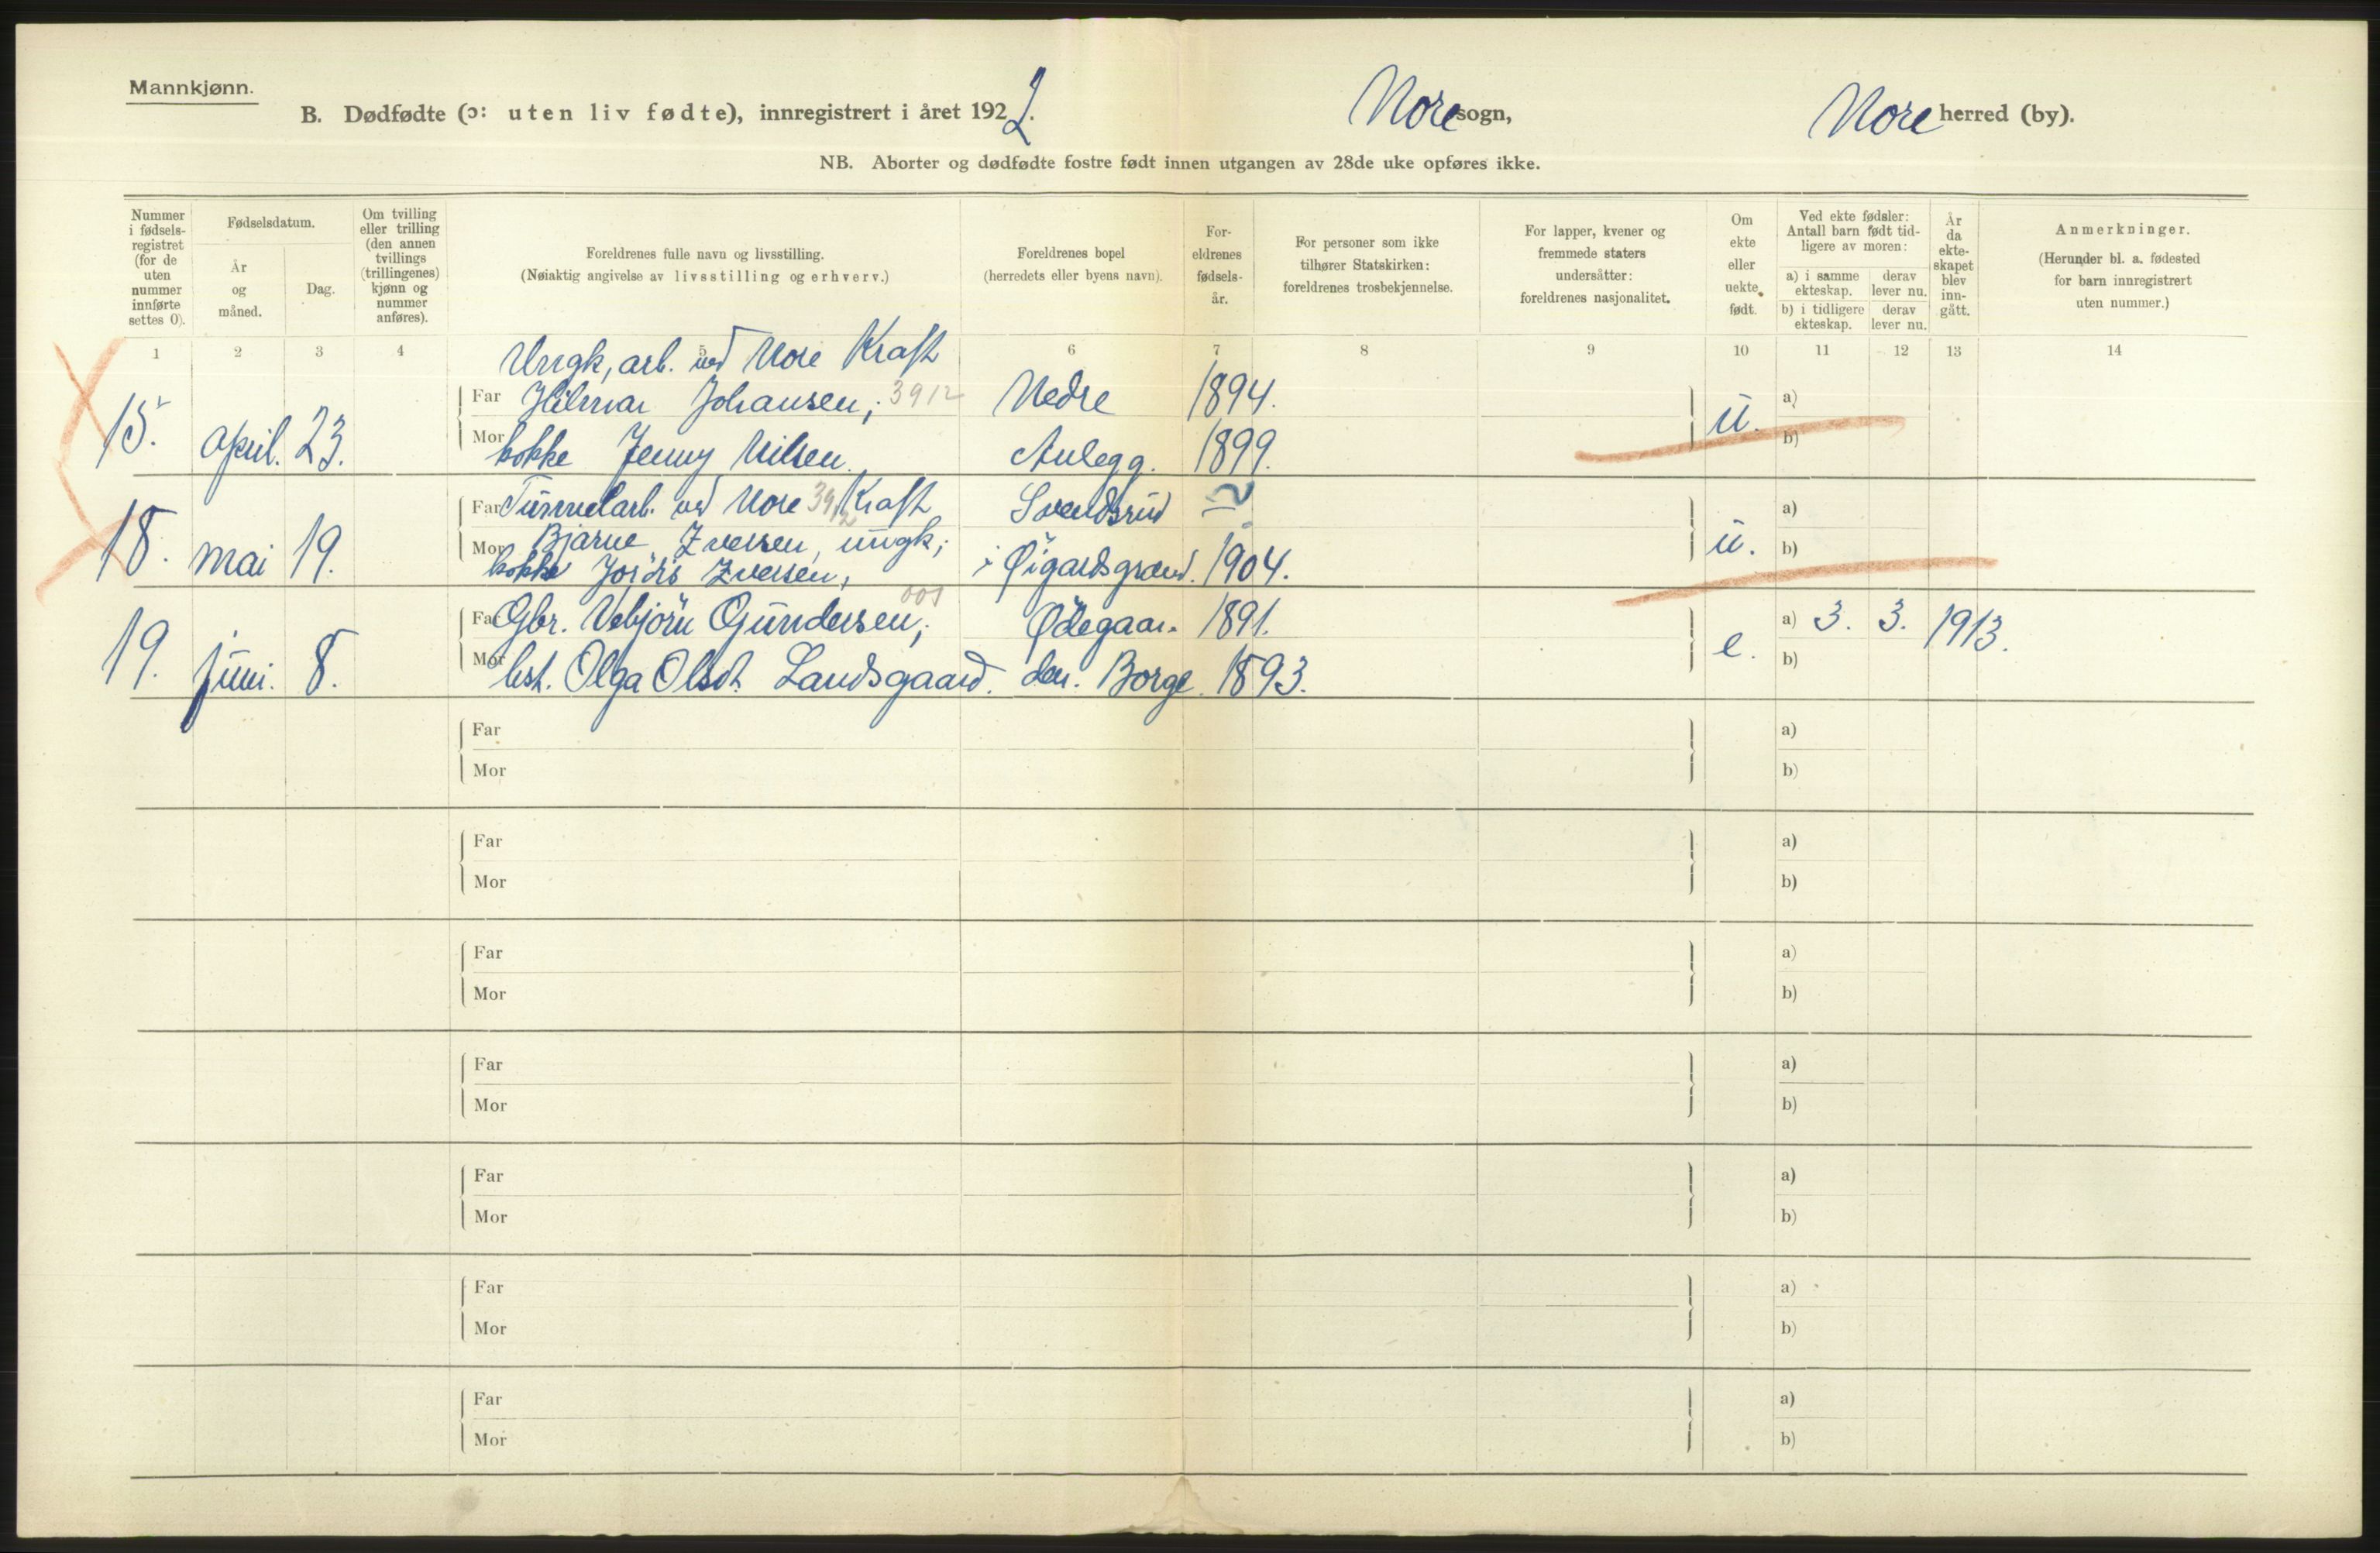 Mannkjønn.
B. Dødfødte (ɔ: uten liv fødte), innregistrert i året 1922. Nore sogn, Nore herred (by).
NB. Aborter og dødfødte fostre født innen utgangen av 28de uke opføres ikke.
Nummer i fødselsregistret (for de uten nummer innførte settes 0).
Fødselsdatum.
År og måned.
Dag.
Om tvilling eller trilling (den annen tvillings (trillingenes) kjønn og nummer anføres).
Foreldrenes fulle navn og livsstilling.
(Nøiaktig angivelse av livsstilling og erhverv.)
Foreldrenes bopel
(herredets eller byens navn).
Foreldrenes fødselsår.
For personer som ikke tilhører Statskirken: foreldrenes trosbekjennelse.
For lapper, kvener og fremmede staters undersåtter: foreldrenes nasjonalitet.
Om ekte eller uekte født.
Ved ekte fødsler: Antall barn født tidligere av moren:
a) i samme ekteskap. derav lever nu.
b) i tidligere ekteskap. derav lever nu.
År da ekteskapet blev inngått.
Anmerkninger.
(Herunder bl. a. fødested for barn innregistrert uten nummer.)
1 2 3 4 5 6 7 8 9 10 11 12 13 14
Ungk, arb. ved Nore Kraft
15. april. 23. Far Hilmar Johansen; 3912 Nedre 1894. u. a)
Mor kokke Jenny Nilsen. Anlegg. 1899. b)
Far Tunnelarb. ved Nore 3912 Kraft Svendsrud a)
18. mai 19. Mor Bjarne Iversen, ungk; u. b)
kokke Jordis Iversen, i Øigardsgrend. 1904.
001
19. juni. 8. Far Gbr. Vebjörn Gundersen; Ødegaar- 1891. e. a) 3. 3. 1913.
Mor hst. Olga Olsdt. Landsgaard. den. Borge. 1893. b)
Far a)
Mor b)
Far a)
Mor b)
Far a)
Mor b)
Far a)
Mor b)
Far a)
Mor b)
Far a)
Mor b)
Far a)
Mor b)